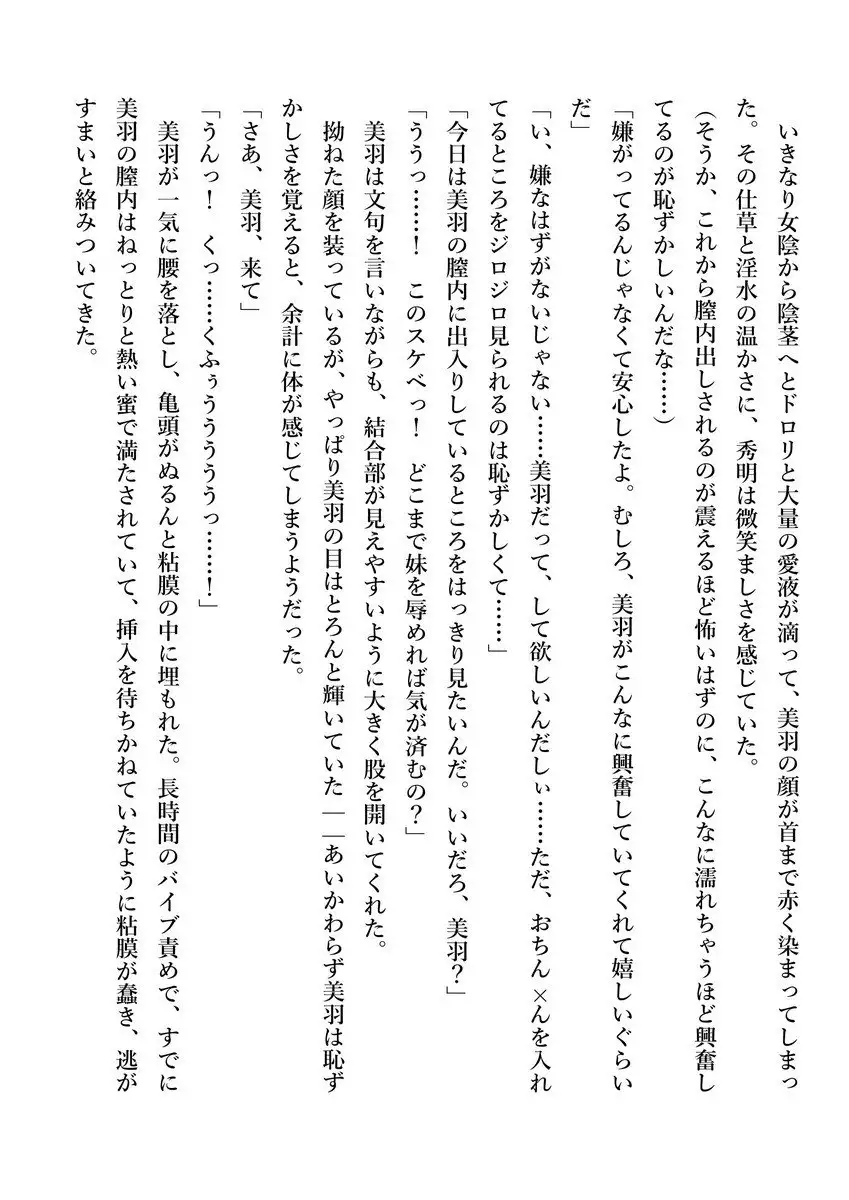 いきなり女陰から陰茎へとドロリと大量の愛液が滴って、美羽の顔が首まで赤く染まってしまっ
た。その仕草と淫水の温かさに、秀明は微笑ましさを感じていた。
(そうか、これから膣内出しされるのが震えるほど怖いはずのに、こんなに濡れちゃうほど興奮し
てるのが恥ずかしいんだな……)
「嫌がってるんじゃなくて安心したよ。むしろ、美羽がこんなに興奮していてくれて嬉しいぐらい
だ」
「い、嫌なはずがないじゃない……美羽だって、して欲しいんだしぃ……ただ、おちん×んを入れ
てるところをジロジロ見られるのは恥ずかしくて……」
「今日は美羽の膣内に出入りしているところをはっきり見たいんだ。いいだろ、美羽?」
「ううっ……! このスケベっ! どこまで妹を辱めれば気が済むの?」
美羽は文句を言いながらも、結合部が見えやすいように大きく股を開いてくれた。
拗ねた顔を装っているが、やっぱり美羽の目はとろんと輝いていた――あいかわらず美羽は恥ず
かしさを覚えると、余計に体が感じてしまうようだった。
「さあ、美羽、来て」
「うんっ! くっ……くふぅうううううっ……!」
美羽が一気に腰を落とし、亀頭がぬるんと粘膜の中に埋もれた。長時間のバイブ責めで、すでに
美羽の膣内はねっとりと熱い蜜で満たされていて、挿入を待ちかねていたように粘膜が蠢き、逃が
すまいと絡みついてきた。